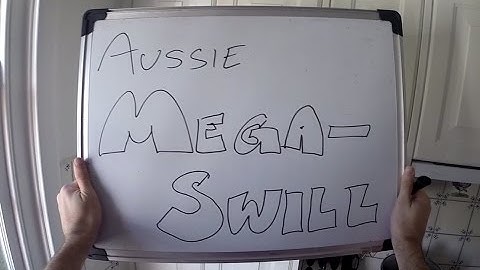 AUSSIE
MEGA-
SWILL